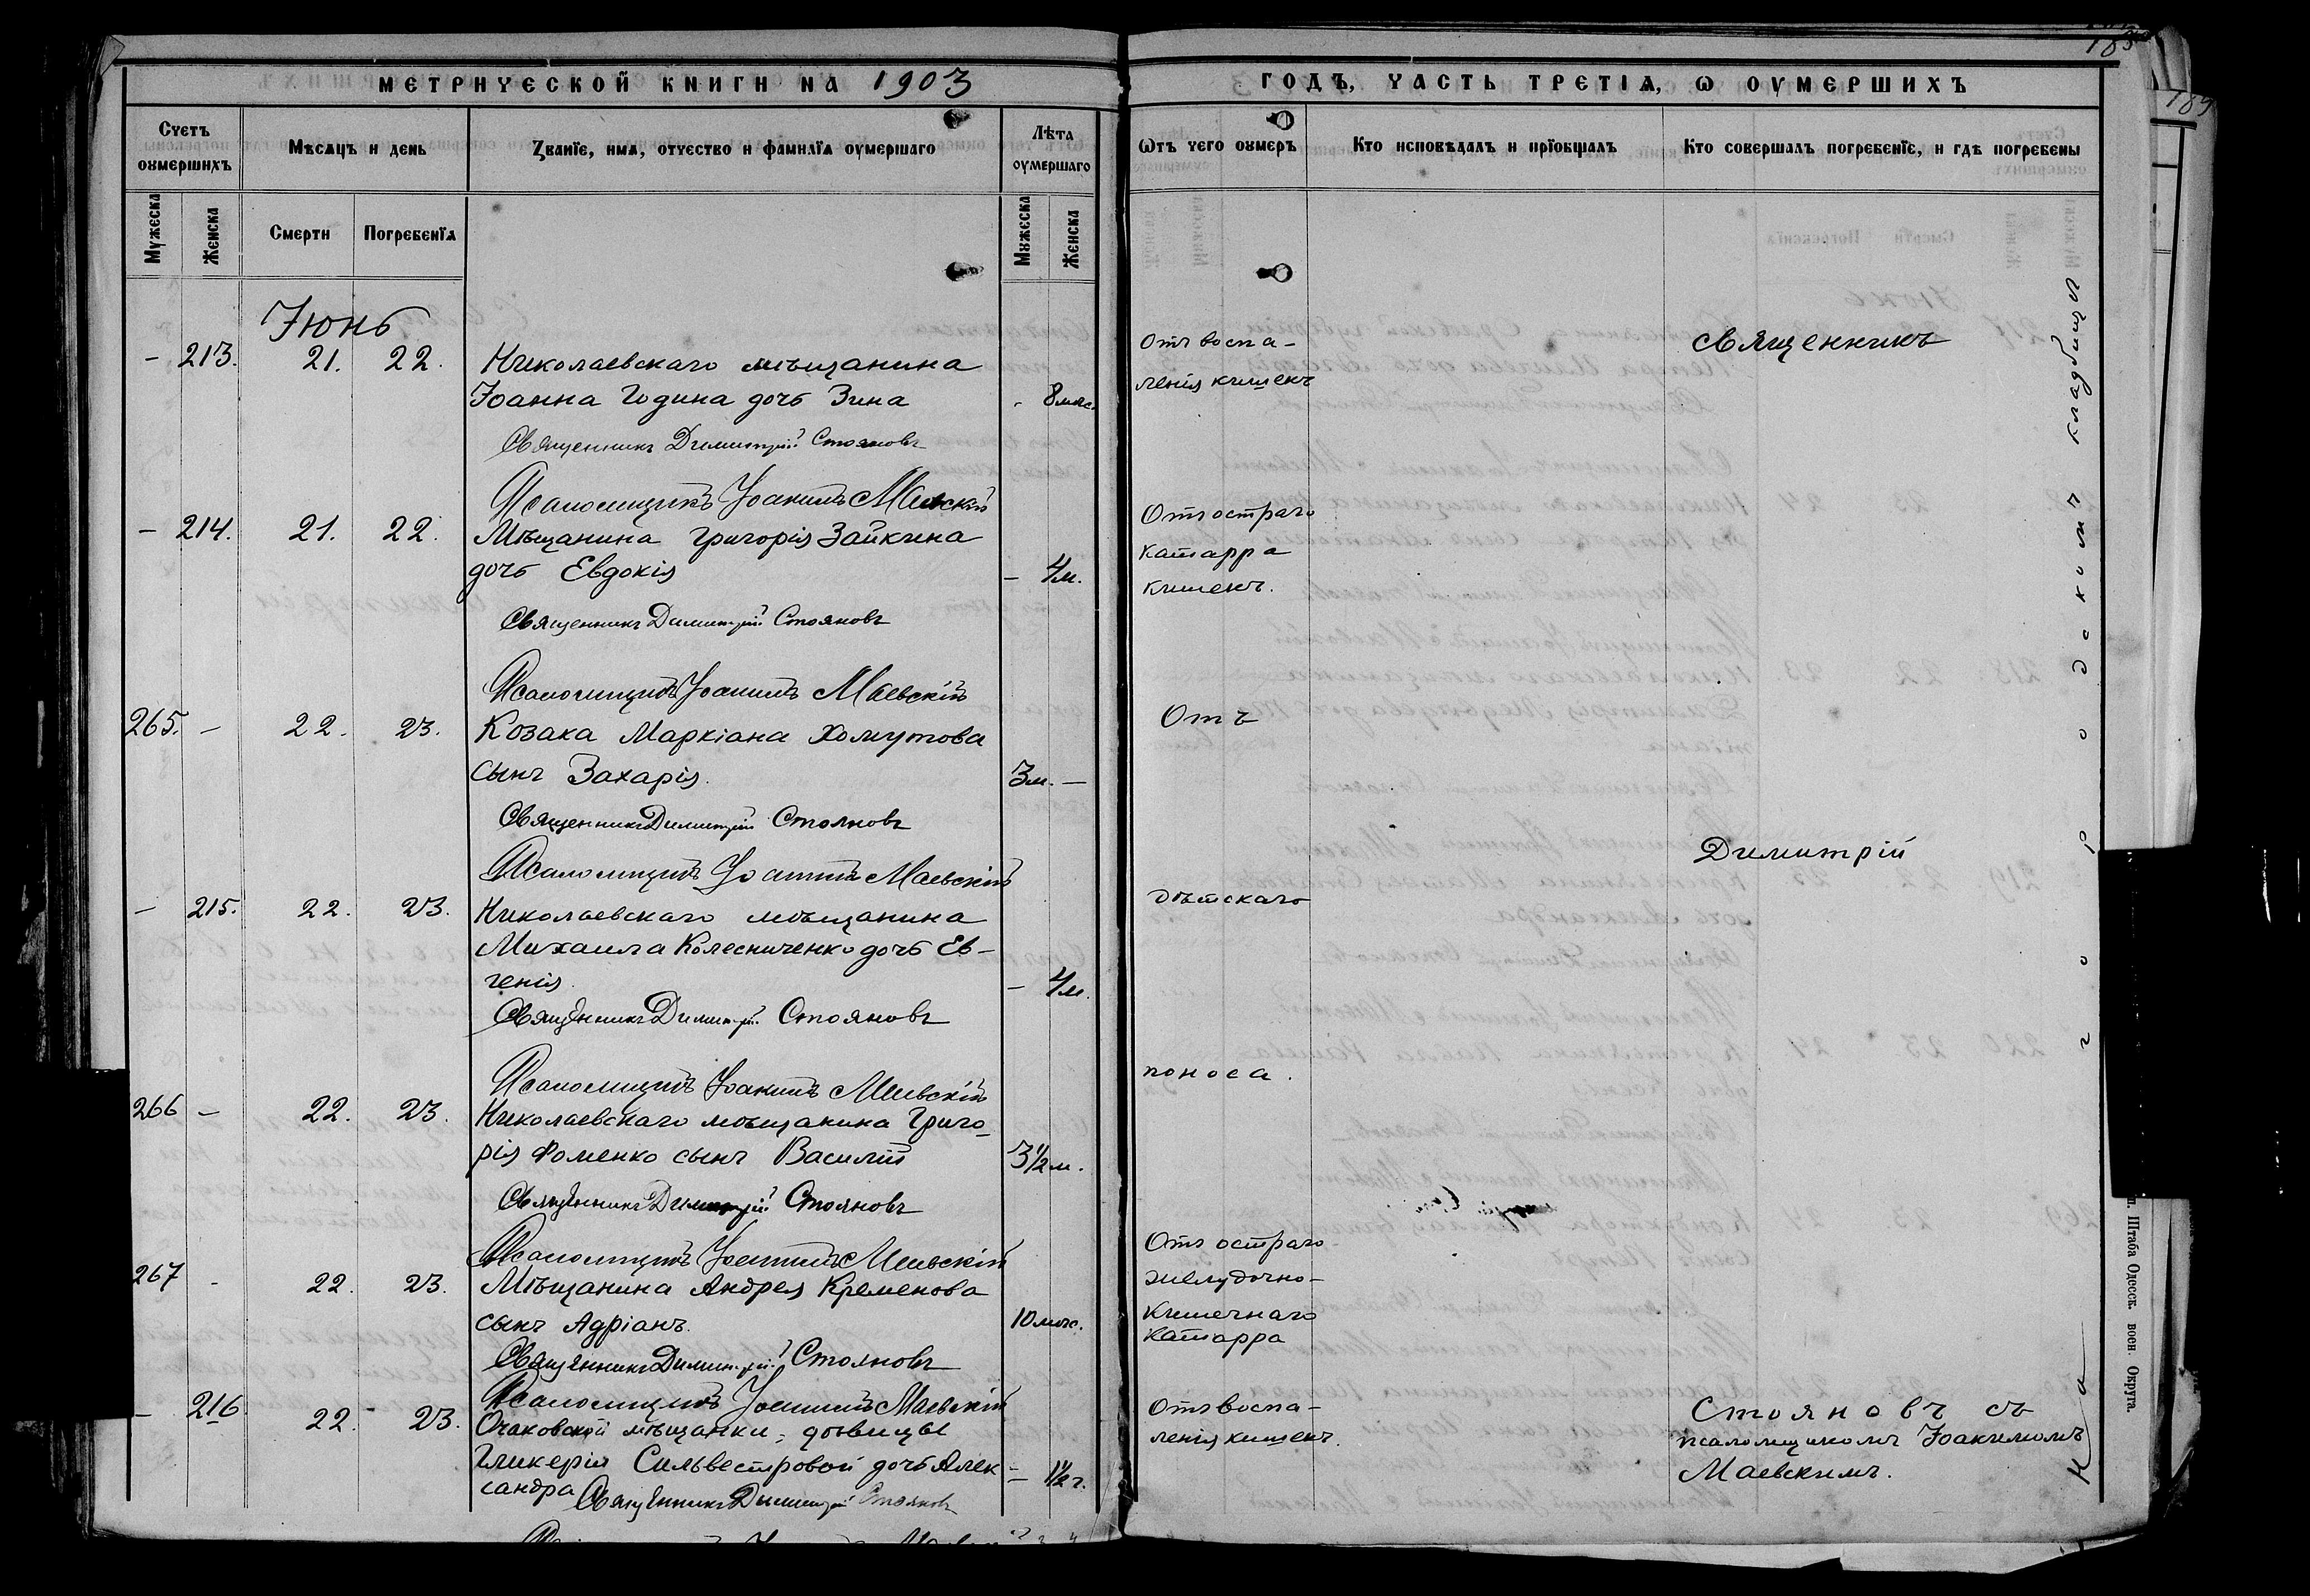 МЕТРИЧЕСКОЙ КНИГИ НА 1903
Счетъ оумершихъ
Мѣсяцъ и день
Званїе, имя, отчество и фамилїя оумершаго
Лѣта оумершаго
Мужеска
Женска
Смерти
Погребенїя
Мужеска
Женска
Іюнь
– 213. 21. 22. Николаевскаго мѣщанина
Іоанна Година дочь Зина - 8 мѣс.
Священникъ Димитрій Стояновъ
Псаломщикъ Іоакимъ Маевскій
– 214. 21. 22. Мѣщанина Григорія Зайкина
дочь Евдокія – 4 м.
Священникъ Димитрій Стояновъ
Псаломщикъ Іоакимъ Маевскій
265. – 22. 23. Козака Маркіана Хомутова
сынъ Захарія. 3 м. –
Священникъ Димитрій Стояновъ
Псаломщикъ Іоакимъ Маевскій
– 215. 22. 23. Николаевскаго мѣщанина
Михаила Колесниченко дочь Ев-
генія. – 4 м.
Священникъ Димитрій Стояновъ
Псаломщикъ Іоакимъ Маевскій
266 – 22. 23. Николаевскаго мѣщанина Григо-
рія Фоменко сынъ Василій 3½ м.
Священникъ Димитрій Стояновъ
Псаломщикъ Іоакимъ Маевскій
267 - 22. 23. Мѣщанина Андрея Кременова
сынъ Адріанъ. 10 мѣс.
Священникъ Димитрій Стояновъ
Псаломщикъ Іоакимъ Маевскій
– 216 22. 23. Очаковской мѣщанки, дѣвицы
Гликерія Сильвестровой дочь Алек-
сандра – 1½ г.
Священникъ Димитрій Стояновъ
185
189
ГОДЪ, ЧАСТЬ ТРЕТІЯ, Ѡ ОУМЕРШИХЪ
Ѿтъ чего оумеръ
Кто исповѣдалъ и прїобщалъ
Кто совершалъ погребенїе, и гдѣ погребены
Отъ воспа-
ленія кишекъ
Отъ остраго
катарра
кишекъ.
Отъ
дѣтскаго
поноса.
Отъ остраго
желудочно-
кишечнаго
катарра
Отъ воспа-
ленія кишекъ.
священникъ
Димитрій
Стояновъ съ
псаломщикомъ Іоакимомъ
Маевскимъ.
На городскомъ кладбищѣ
п. Штаба Одесск. воен. Округа.